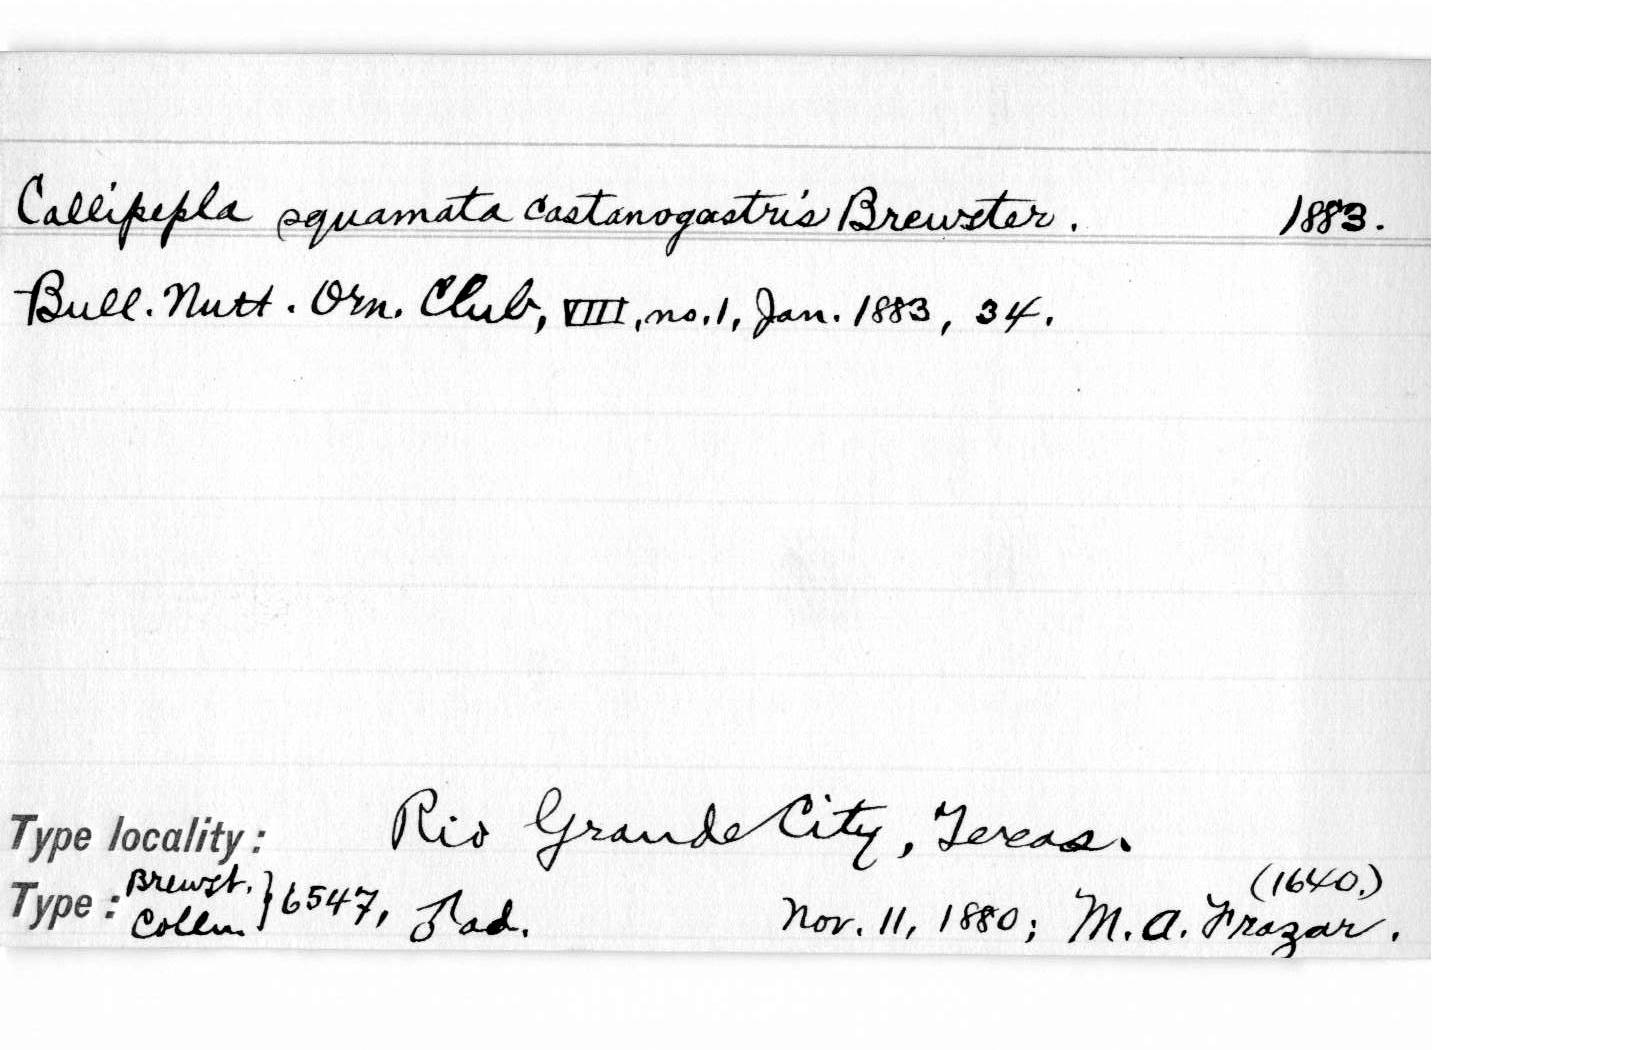 Callipepla squamata castanogastris Brewster. 1883.
Bull. Nutt. Orn. Club, VIII, no. 1, Jan. 1883, 34.
Type locality: Rio Grande City, Texas.
(1640.)
Type: Brewst. Colln. } 6547, ♂ ad. Nov. 11, 1880; M. A. Frazar.